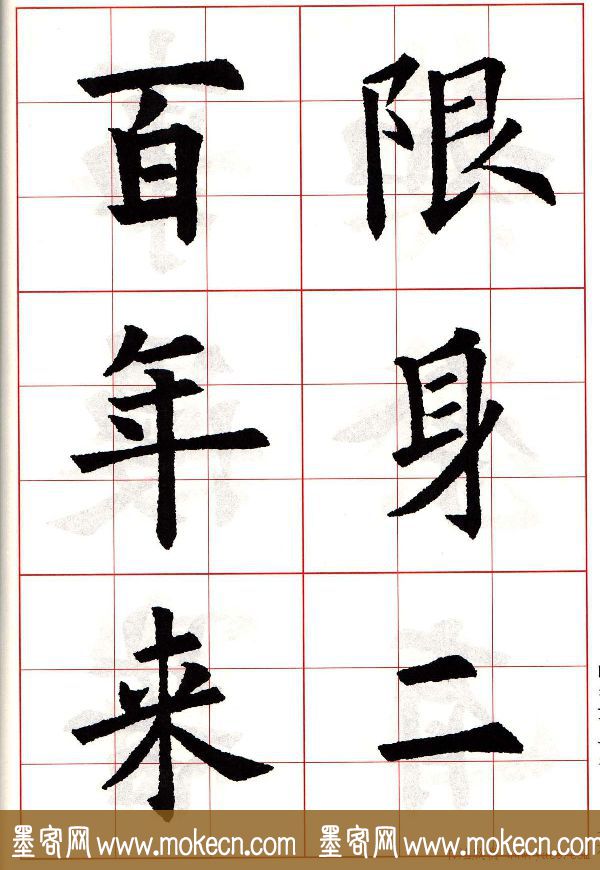 限身二
百年来
墨客网 www.mokecn.com 墨客网 www.mokecn.com